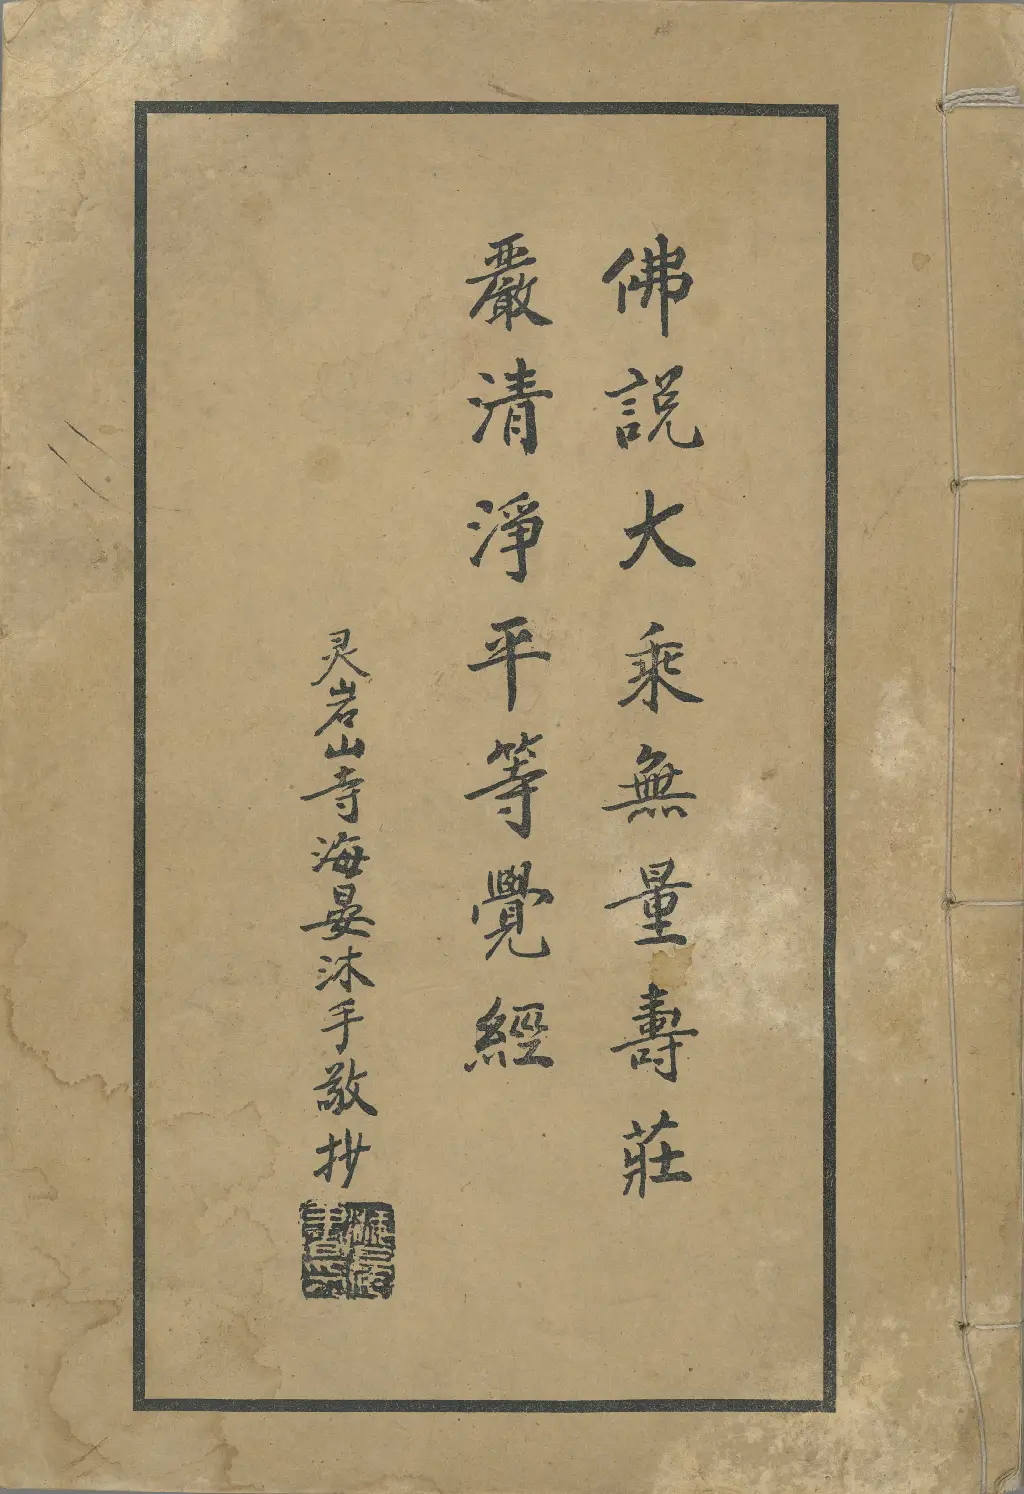 佛説大乘無量壽莊
嚴清淨平等覺經
灵岩山寺海晏沐手敬抄
海晏書印